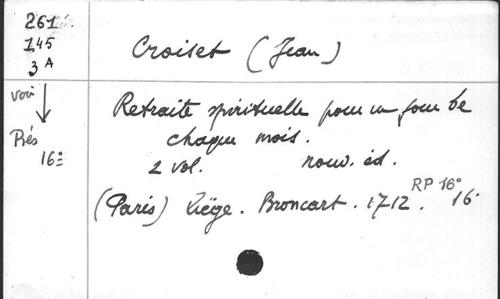 261.
145
3 A
voir
Rés
16º
Croiset (Jean)
Retraite spirituelle pour un jour de
chaque mois.
2 vol. nouv. éd.
(Paris) Liège. Broncart. 1712. RP 16° 16º